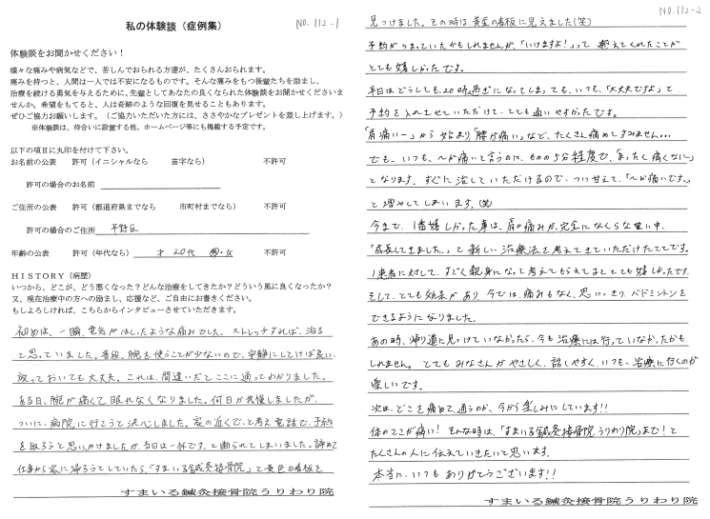 NO. 112-1
私の体験談（症例集）
体験談をお聞かせください！
様々な痛みや病気などで、苦しんでおられる方達が、たくさんおられます。
痛みを持つと、人間は一人では不安になるものです。そんな痛みをもつ後輩たちを励まし、
治療を続ける勇気を与えるために、先輩としてあなたの良くなられた体験談をお聞かせくださいま
せんか。希望をもてると、人は奇跡のような回復を見せることもあります。
ぜひご協力お願いします。（ご協力いただいた方には、ささやかなプレゼントを差し上げます。）
※体験談は、待合いに設置する他、ホームページ等にも掲載する予定です。
以下の項目に丸印を付けて下さい。
お名前の公表 許可（イニシャルなら 苗字なら） 不許可
許可の場合のお名前
ご住所の公表 許可（都道府県までなら 市町村までなら） 不許可
許可の場合のご住所 平野区
年齢の公表 許可（年代なら） 才 20代 男・女 不許可
ＨＩＳＴＯＲＹ（病歴）
いつから、どこが、どう悪くなった？どんな治療をしてきたか？どういう風に良くなったか？
又、現在治療中の方への励まし、応援など、ご自由にお書きください。
もしよろしければ、こちらからインタビューさせていただきます。
初めは、一瞬、電気が流したような痛みでした。ストレッチすれば、治る
と思っていました。普段、腕を使うことが少ないので、安静にしてけば良い、
放っておいても大丈夫。これは、間違いだとここに通ってわかりました。
ある日、腕が痛くて眠れなくなりました。何日か我慢しましたが、
ついに、病院に行こうと決心しました。家の近くで、と考え電話で、予約
を取ろうと思いかけましたが、当日は一杯です。と断られてしまいました。諦めて
仕事から家に帰ろうとしていたら、「すまいる鍼灸接骨院」と黄色の看板を
すまいる鍼灸接骨院うりわり院
NO. 112-2
見つけました。その時は、黄金の看板に見えました(笑)
予約がうまっていたかもしれませんが、「いけますよ！」って教えてくれたことが
とても嬉しかったです。
平日はどうしても、20時過ぎになってしまっても、いつも、「大丈夫ですよ」と
予約を入れさせていただけて、とても通いやすかったです。
「肩痛いー」から始まり「腰が痛い」など、たくさん痛めてすみません...
でも、いつも、〜が痛いと言うのに、ものの5分程度で、「まったく痛くない」
となります。すぐに治していただけるので、つい甘えて、「〜が痛いです。」
と増やしてしまいます。(笑)
今まで、1番嬉しかった事は、肩の痛みが、完全になくならない中、
「成長してきました。」と新しい治療法を考えてきていただけたことです。
1患者に対して、すごく親身になって考えてもらえてるととても嬉しかったです。
そして、とても効果があり、今では、痛みもなく、思いっきり、バドミントンを
できるようになりました。
あの時、帰り道に見つけていなかったら、今も治療には行っていなかったかも
しれません。とてもみなさんがやさしく、話しやすく、いつも、治療に行くのが
楽しいです。
次は、どこを痛めて、通うのか、今から楽しみにしています!!
体のここが痛い！そんな時は、「すまいる鍼灸接骨院うりわり院」まで！と
たくさんの人に伝えていきたいと思います。
本当に、いつもありがとうございます!!
すまいる鍼灸接骨院うりわり院